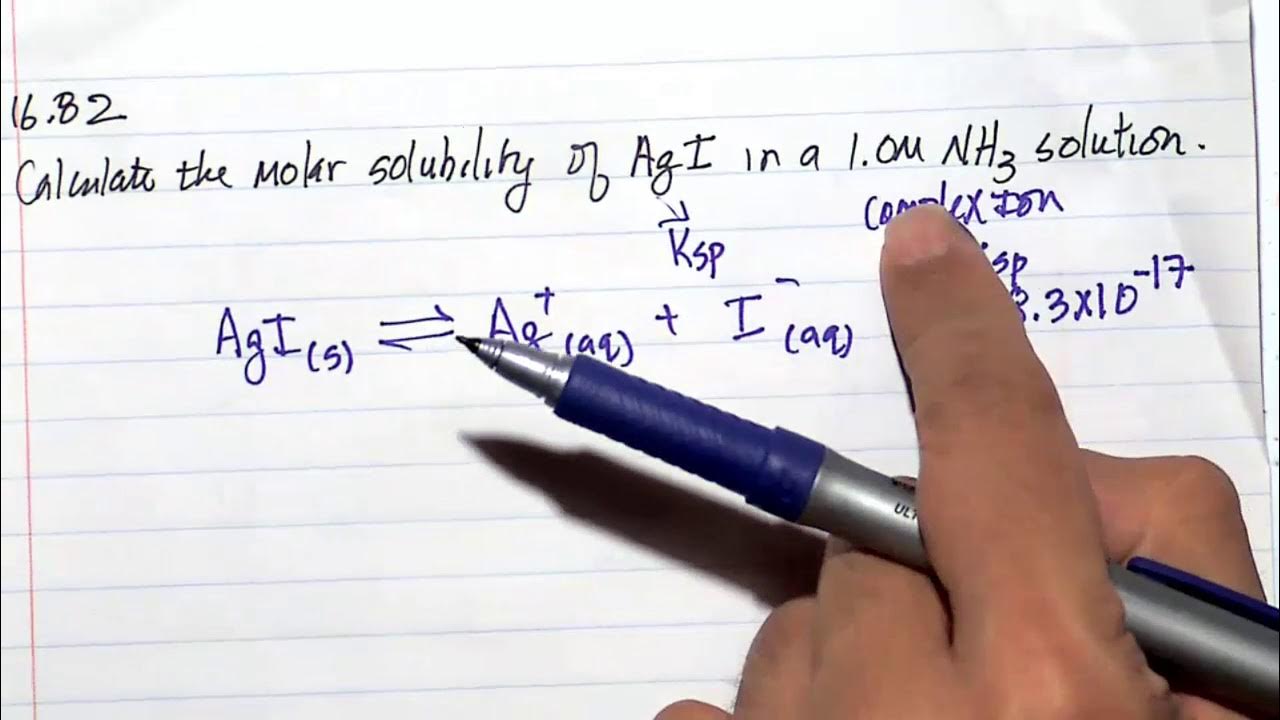 16.82
Calculate the molar solubility of AgI in a 1.0M NH₃ solution.
complex Ion
Ksp
sp
8.3x10⁻¹⁷
AgI(s) ⇌ Ag⁺(aq) + I⁻(aq)